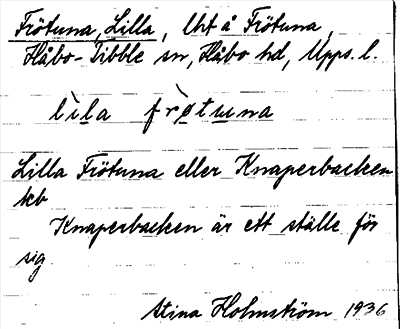 Frötuna, Lilla, Uht å Frötuna,
Håbo-Tibble sn, Håbo hd, Upps. l.
lìla frø̀tuna
Lilla Frötuna eller Knaperbacken
kb
Knaperbacken är ett ställe för
sig.
Stina Holmström 1936